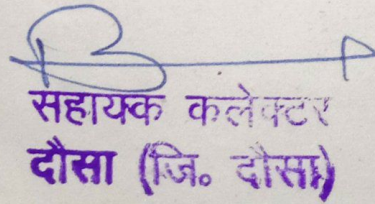 सहायक कलेक्टर
दौसा (जि॰ दौसा)